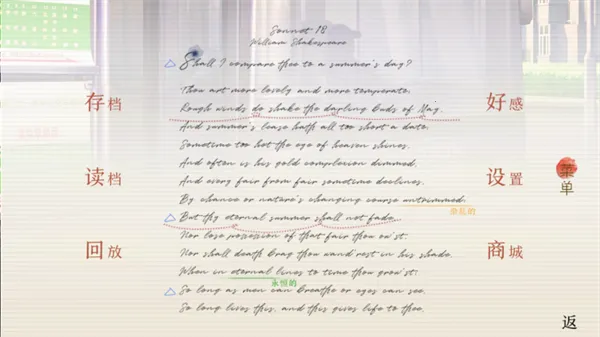 Sonnet 18
William Shakespeare
Shall I compare thee to a summer's day?
Thou art more lovely and more temperate.
Rough winds do shake the darling buds of May.
And summer's lease hath all too short a date.
Sometime too hot the eye of heaven shines.
And often is his gold complexion dimmed.
And every fair from fair sometime declines.
By chance or nature's changing course untrimmed.
But thy eternal summer shall not fade.
Nor lose possession of that fair thou ow'st.
Nor shall death brag thou wand'rest in his shade.
When in eternal lines to time thou grow'st.
永恒的
So long as men can breathe or eyes can see.
So long lives this, and this gives life to thee.
存档
读档
回放
好感
设置
商城
菜单
返